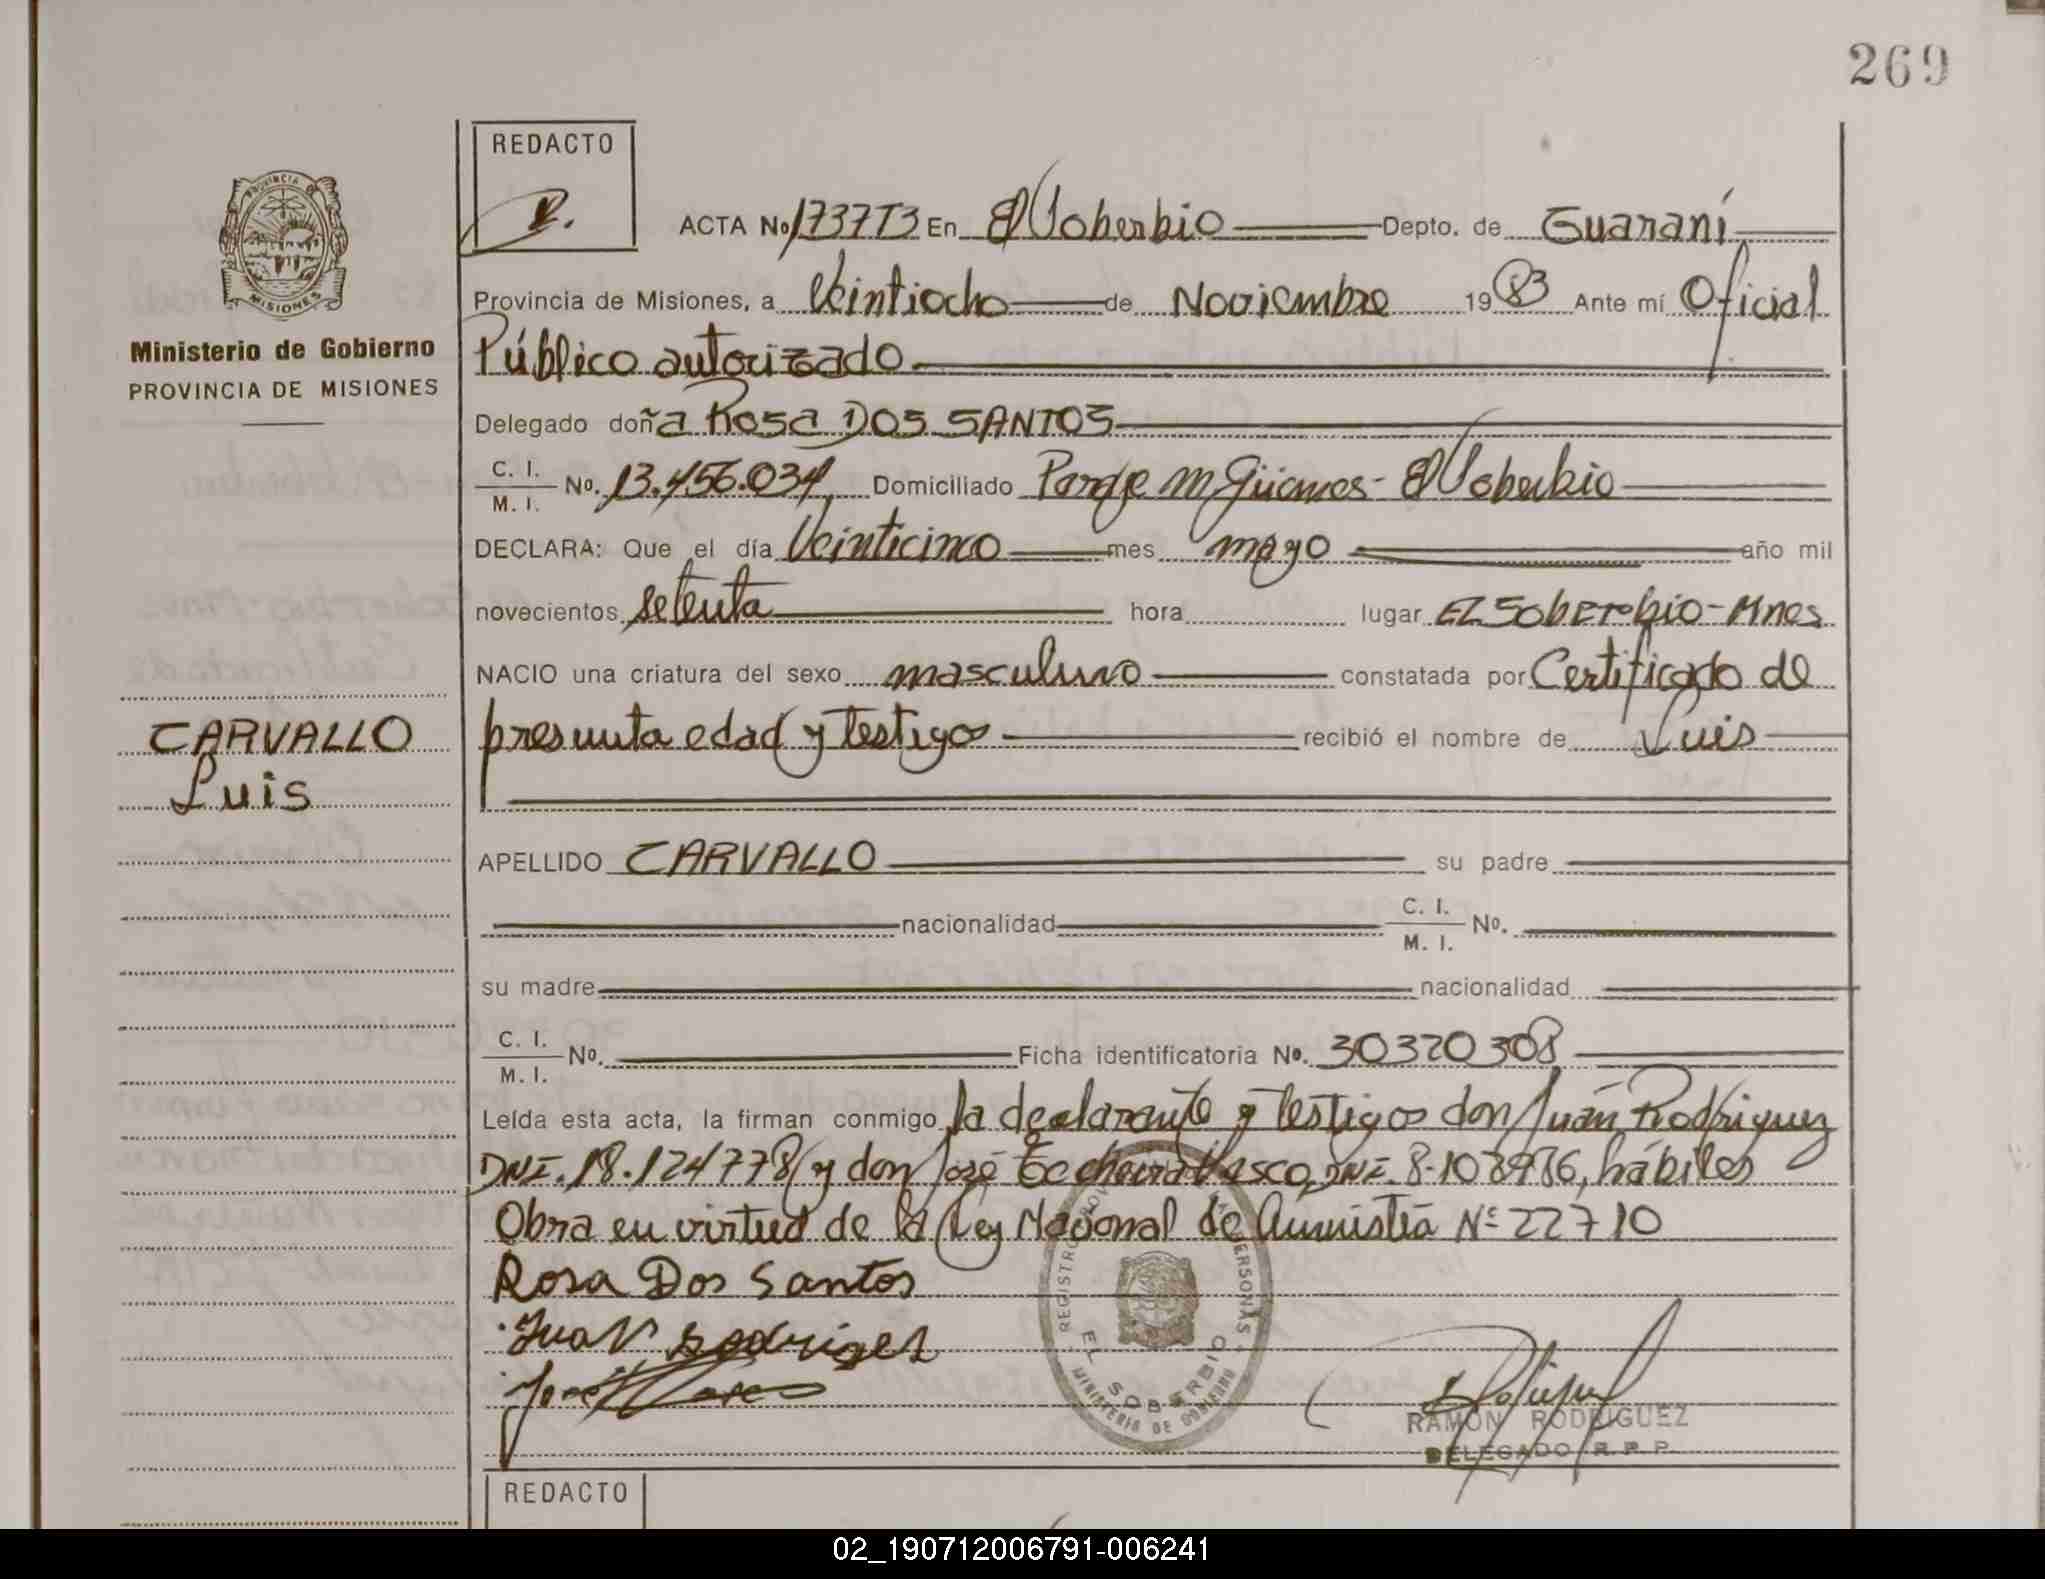 269
REDACTO
ACTA No 1737T3 En El Soberbio Depto. de Guaraní
Provincia de Misiones, a Veintiocho de Noviembre 1983 Ante mí Oficial
Ministerio de Gobierno
Público autorizado
PROVINCIA DE MISIONES
Delegado doña Rosa DOS SANTOS
C. I.
M. I.
No. 13.456.034 Domiciliado Paraje M Güemes - El Soberbio
DECLARA: Que el día Veinticinco mes mayo año mil
novecientos setenta hora lugar EL Soberbio - Mnes
NACIO una criatura del sexo masculino constatada por Certificado de
CARVALLO
presunta edad y testigos recibió el nombre de Luis
Luis
APELLIDO CARVALLO su padre
nacionalidad C. I.
M. I.
No.
su madre nacionalidad
C. I.
M. I.
No. Ficha identificatoria No. 30320308
Leída esta acta, la firman conmigo la declarante y testigos don Juan Rodriguez
DNI. 18.124778 y don José Vasco, DNI. 8.108986, hábiles
Obra en virtud de la Ley Nacional de Amnistía Nº 22710
Rosa Dos Santos
Juan Rodriges
José
REGISTRO PROV PERSONAS
EL SOBERBIO
MINISTERIO DE GOBIERNO
RAMON RODRIGUEZ
DELEGADO R. P. P.
REDACTO
PROVINCIA DE
MISIONES
02_190712006791-006241